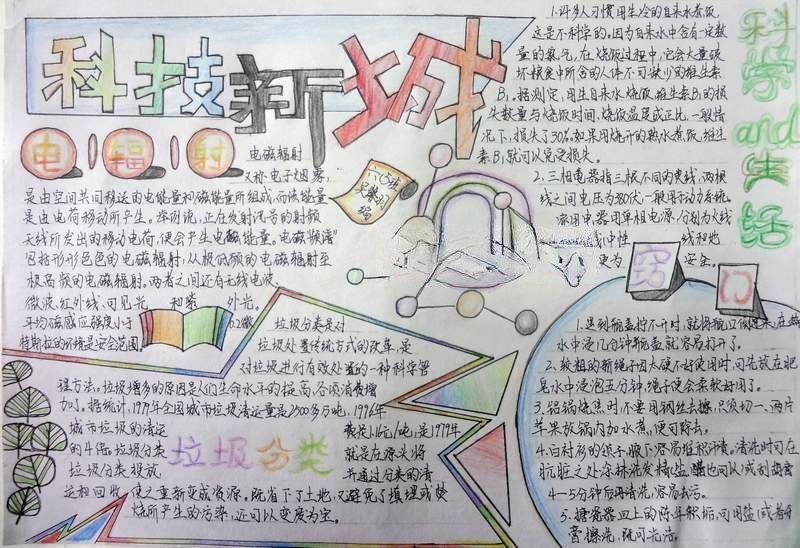 科技新城
电辐射
电磁辐射
又称电子烟雾,
是由空间共同移送的电能量和磁能量所组成,而该能量
是由电荷移动所产生。举例说,正在发射讯号的射频
天线所发出的移动电荷,便会产生电磁能量。电磁“频谱”
包括形形色色的电磁辐射,从极低频的电磁辐射至
极高频的电磁辐射。两者之间还有无线电波、
微波、红外线、可见光和紫外光。
平均磁感应强度小于0.2微
特斯拉的环境是安全范围
垃圾分类是对
垃圾处置传统方式的改革,是
对垃圾进行有效处置的一种科学管
理方法。垃圾增多的原因是人们生命水平的提高、各项消费增
加了。据统计,1979年全国城市垃圾清运量是2500多万吨,1996年
城市垃圾的清运
的4倍。垃圾分类就是在源头将
垃圾分类投放,并通过分类的清
运和回收,使之重新变成资源。既省下了土地,又避免了填埋或焚
烧所产生的污染,还可以变废为宝。
垃圾分类
科学and生活
1.许多人习惯用生冷的自来水煮饭,
这是不科学的。因为自来水中含有一定数
量的氯气,在烧饭过程中,它会大量破
坏粮食中所含的人体不可缺少的维生素
B₁。据测定,用生自来水烧饭,维生素B₁的损
失数量与烧饭时间、烧饭温度成正比,一般情
况下,损失了30%。如果用烧开的热水煮饭,维生
素B₁就可以免受损失。
2.三相电器指三根不同的火线,两根
线之间电压为380伏,一般用于动力系统。
家用电器用单相电源,分别为火线
中性线和地
更为安全。
窍门
1.遇到瓶盖拧不开时,就将瓶口
水中浸几分钟瓶盖就容易打开了。
2.较粗的新绳子因太硬不好使用时,可先放在肥
皂水中浸泡五分钟,绳子便会柔软好用了。
3.铝锅烧焦时,不要用钢丝去擦,只须切一、两片
苹果放锅内加水煮,便可除去。
4.白衬衫的领子、腋下容易堆积汗渍。清洗时可在
肮脏之处涂抹洗发精
4-5分钟后再清洗,容易去污。
5.搪瓷器皿上的陈年积垢,可用盐(或者牙
膏擦洗,既可光洁。